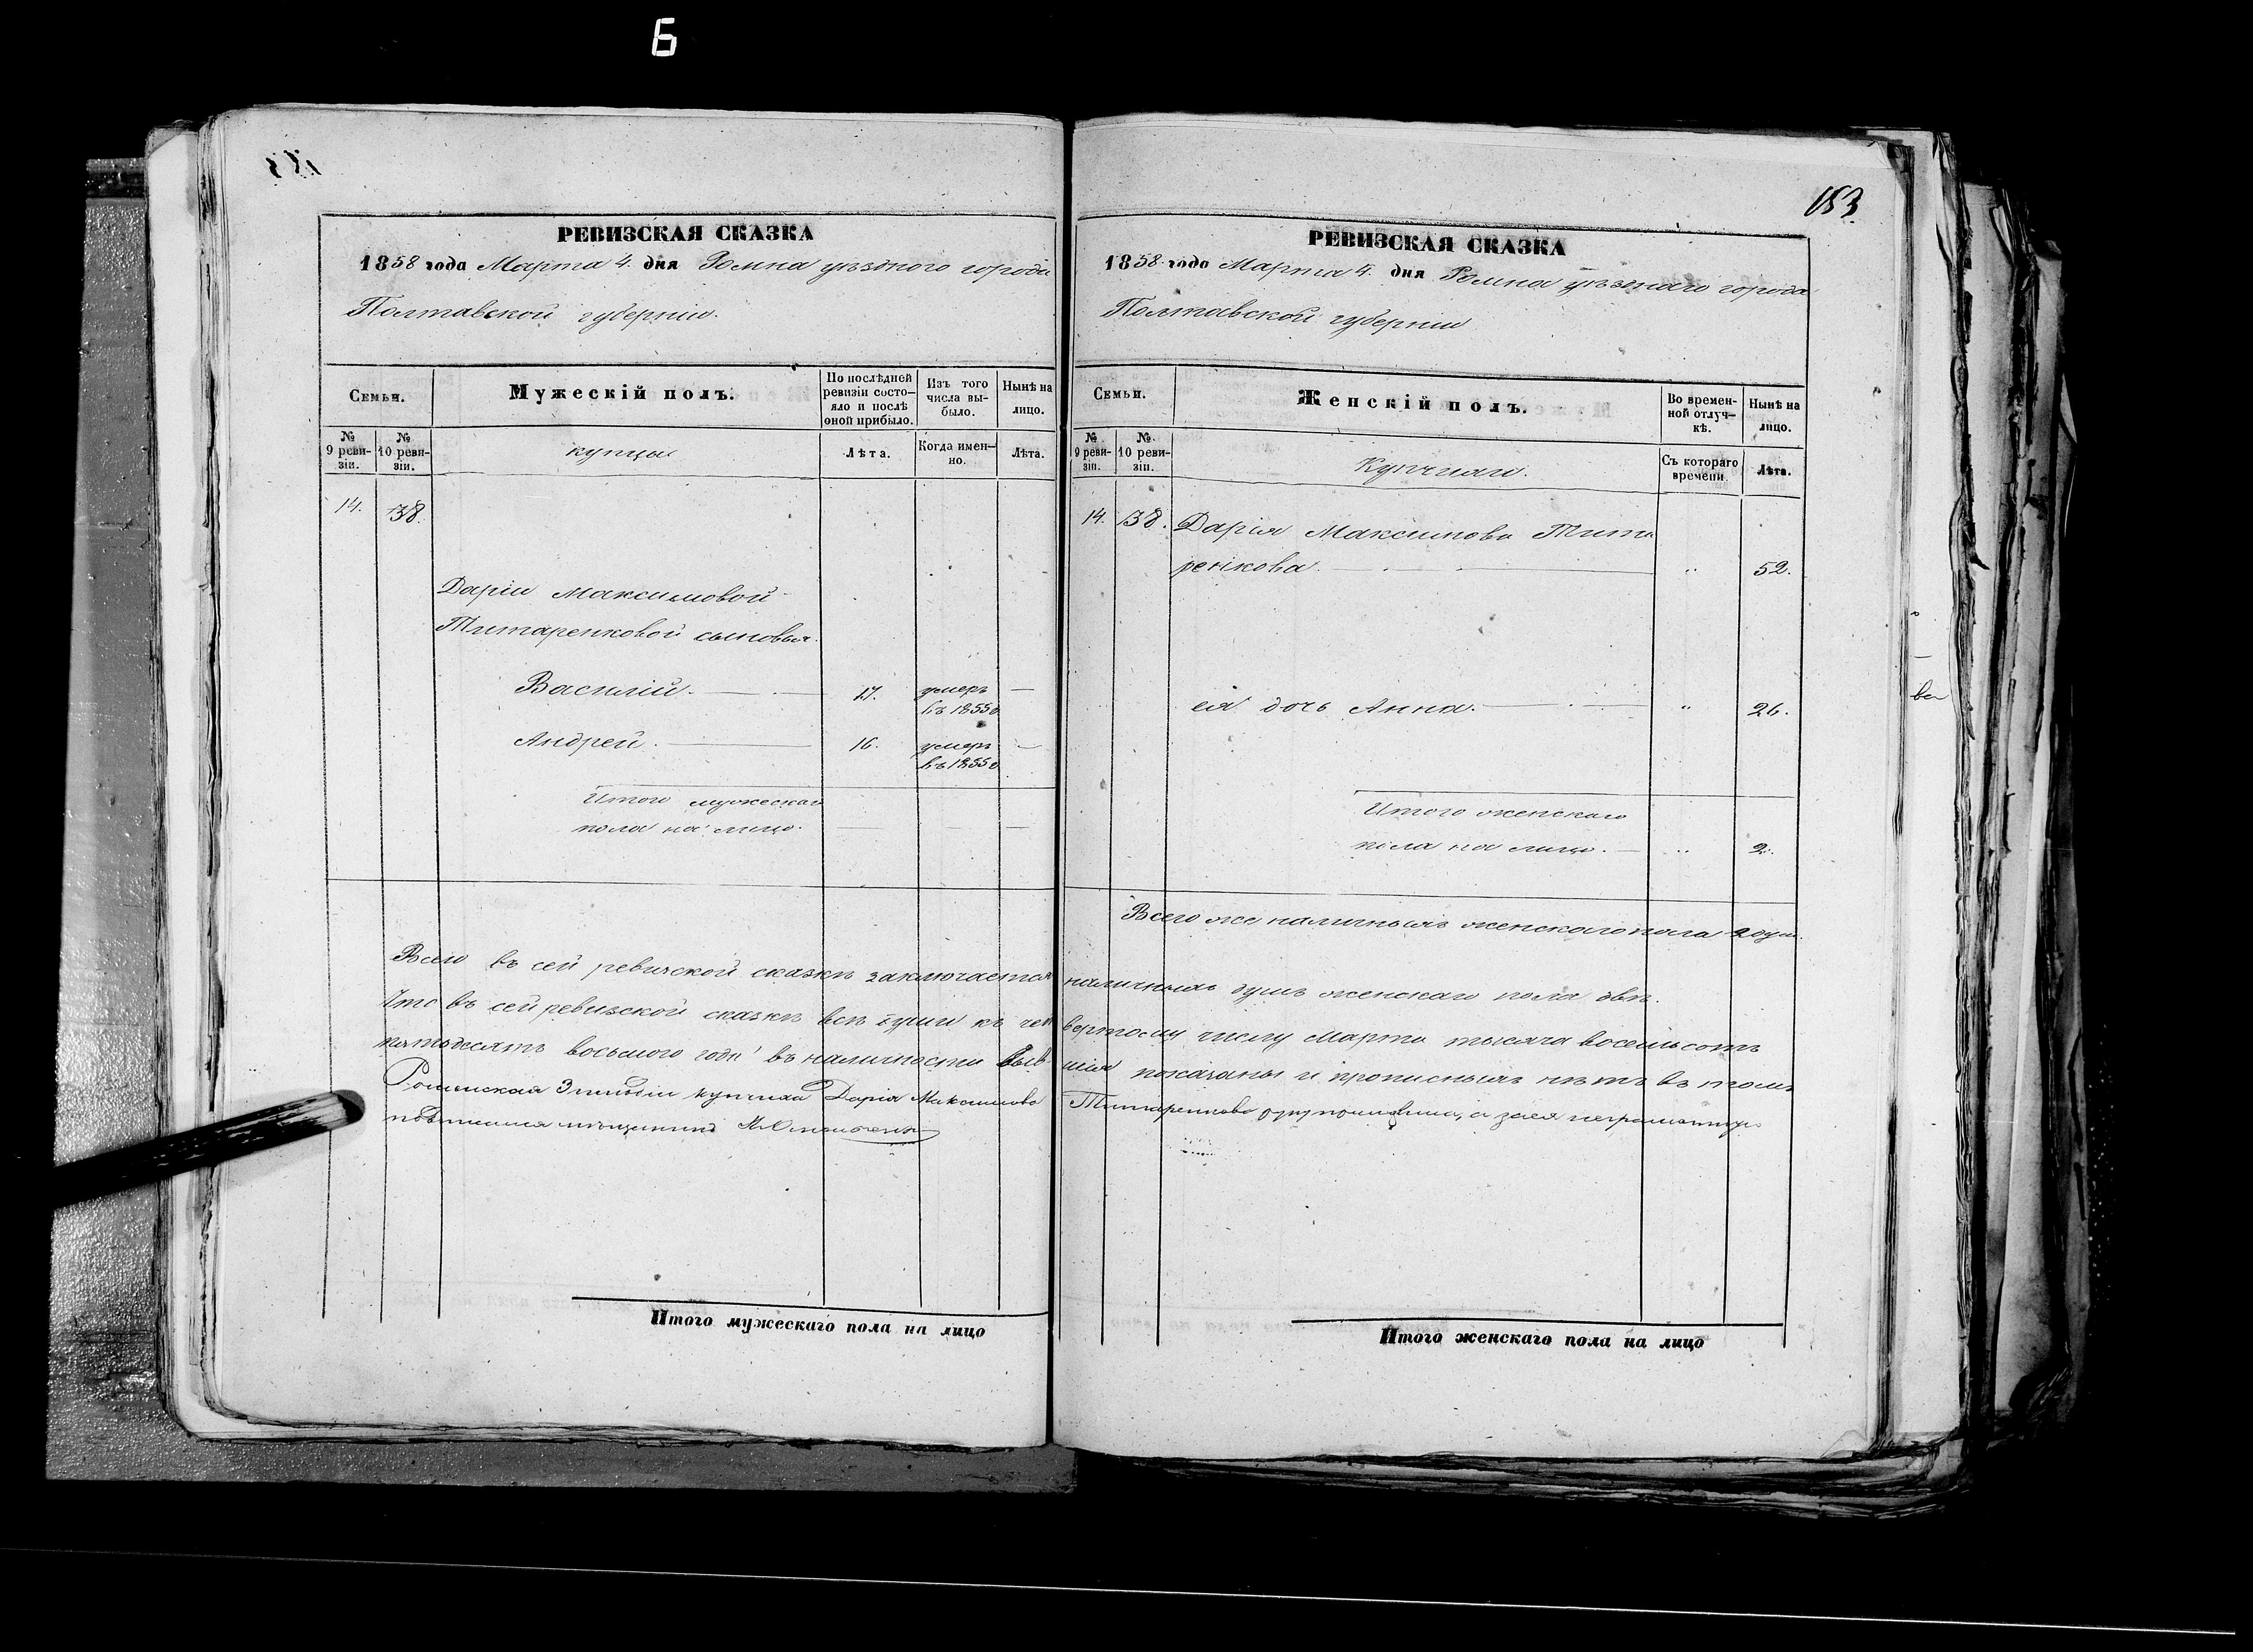 Б
183
РЕВИЗСКАЯ СКАЗКА
1858 года Марта 4. дня Ромна уѣзднаго города
Полтавской губерніи.
Семьи.
Мужескій полъ.
По послѣдней ревизіи состо-яло и послѣ оной прибыло.
Изъ того числа вы-было.
Нынѣ на лицо.
№ 9 реви-зіи.
№ 10 реви-зіи.
купцы
Лѣта.
Когда имен-но.
Лѣта.
14. 138.
Даріи Максимовой
Титаренковой сыновья.
Василій. 17. умеръ
въ 1855 г
Андрей. 16. умеръ
въ 1855 г
Итого мужескаго
пола на лицо.
РЕВИЗСКАЯ СКАЗКА
1858 года Марта 4. дня Ромна уѣзднаго города
Полтавской губерніи
Семьи.
Женскій полъ.
Во времен-ной отлуч-кѣ.
Нынѣ на лицо.
№ 9 реви-зіи.
№ 10 реви-зіи.
Купчихи.
Съ котораго времени.
Лѣта.
14. 138. Дарія Максимова Тита
ренкова. " 52.
ея дочь Анна. " 26.
Итого женскаго
пола на лицо. " 2.
Всего же наличныхъ женскаго пола 2 душ.
Всего въ сей ревизской сказкѣ заключается наличныхъ душъ женскаго пола двѣ.
Что въ сей ревизской сказкѣ всѣ души къ чет вертому числу Марта тысяча восемьсотъ
пятьдесятъ восьмого года въ наличности быв шія показаны и прописныхъ нѣтъ въ томъ
Роменская 3 гильдіи купчиха Дарія Максимова Титаренкова а за ея неграмотную
мѣщанинъ
Итого мужескаго пола на лицо
Итого женскаго пола на лицо